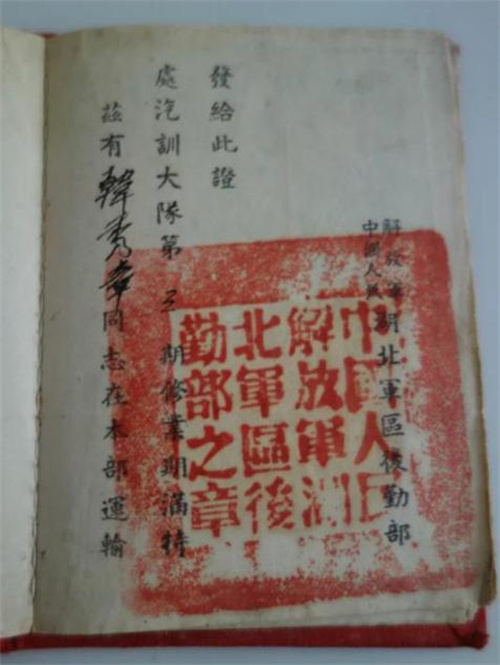 茲有韓秀章同志在本部運輸
處汽訓大隊第三期修業期滿特
發給此證
中國人民
解放軍
湖北軍區後勤部
中國人民
解放軍湖
北軍區後
勤部之章